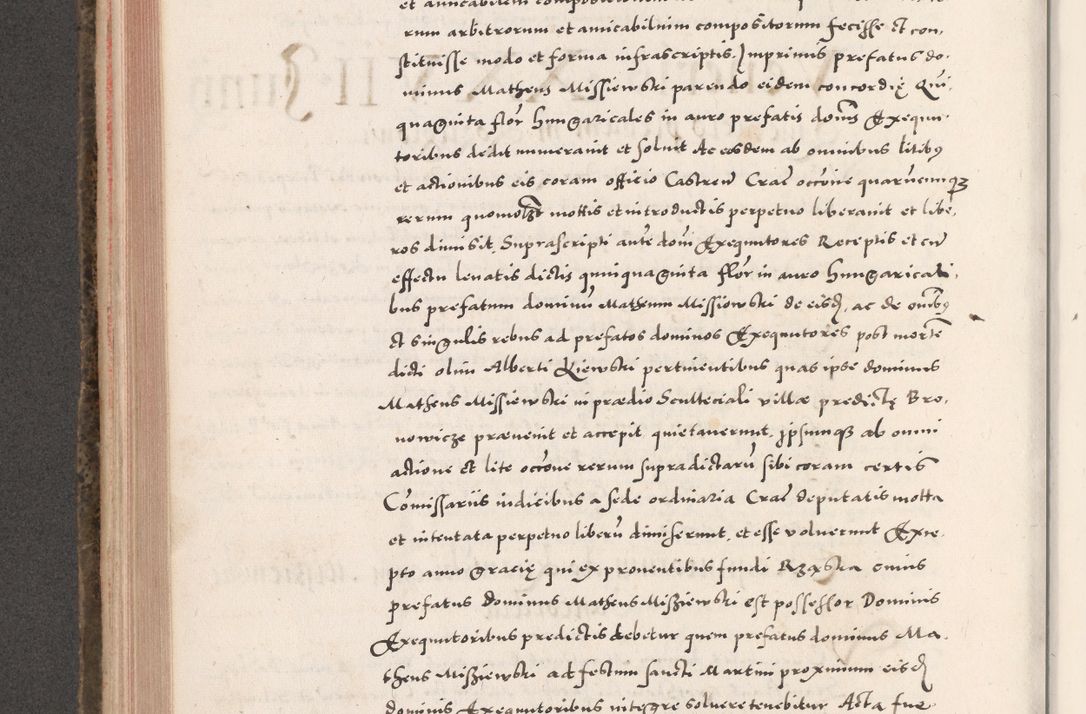 et amicabilem compositionem
rum arbitrorum et amicabilium compositorum fecisse et con,
stituisse modo et forma infrascriptis. Imprimis prefatus do,
minus Matheus Missiewski parendo eidem concordię Qui,
quaginta flor hungaricales in auro prefatis domīs Exequu,
toribus dedit numeravit et solvit Ac eosdem ab omnibus litibꝫ
et actionibus eis coram officio Castreñ Cracͦ occōne quarūcumqꝫ
rerum quomolꝫt mottis et introductis perpetuo liberavit et libe,
ros dimisit, Suprascripti ante domi Exequutores Receptis et cū
effectu levatis dictis quinquaginta flor in auro hungaricali,
bus prefatum dominū Matheum Missiowski de eisd, ac de omībꝫ
et singulis rebus ad prefatos dominos Exequutores post mortē
dicti olim Alberti Kiewski pertinentibus quas ipse dominus
Matheus Missiewski in prædio Scultetiali villæ predictę Bro,
nowicze prævenit et accepit quietaverunt, ipsumqꝫ ab omni
actione et lite occōne rerum supradictarū sibi coram certis
Cōmissariis iudicibus a sede ordinaria Cracͦ deputatis motta
et intentata perpetuo liberū dimiserunt, et esse voluerunt Exce,
pto anno gracię qui ex proventibus fundi Rząska cuius
prefatus Dominus Matheus Misziewski est possessor Dominis
Exequutoribus predictis debetur quem prefatus dominus Ma,
theus Misziewski ad festum sancti Martini proximum eisd
dominis Exequutoribus integre solvere tenebitur Acta fue